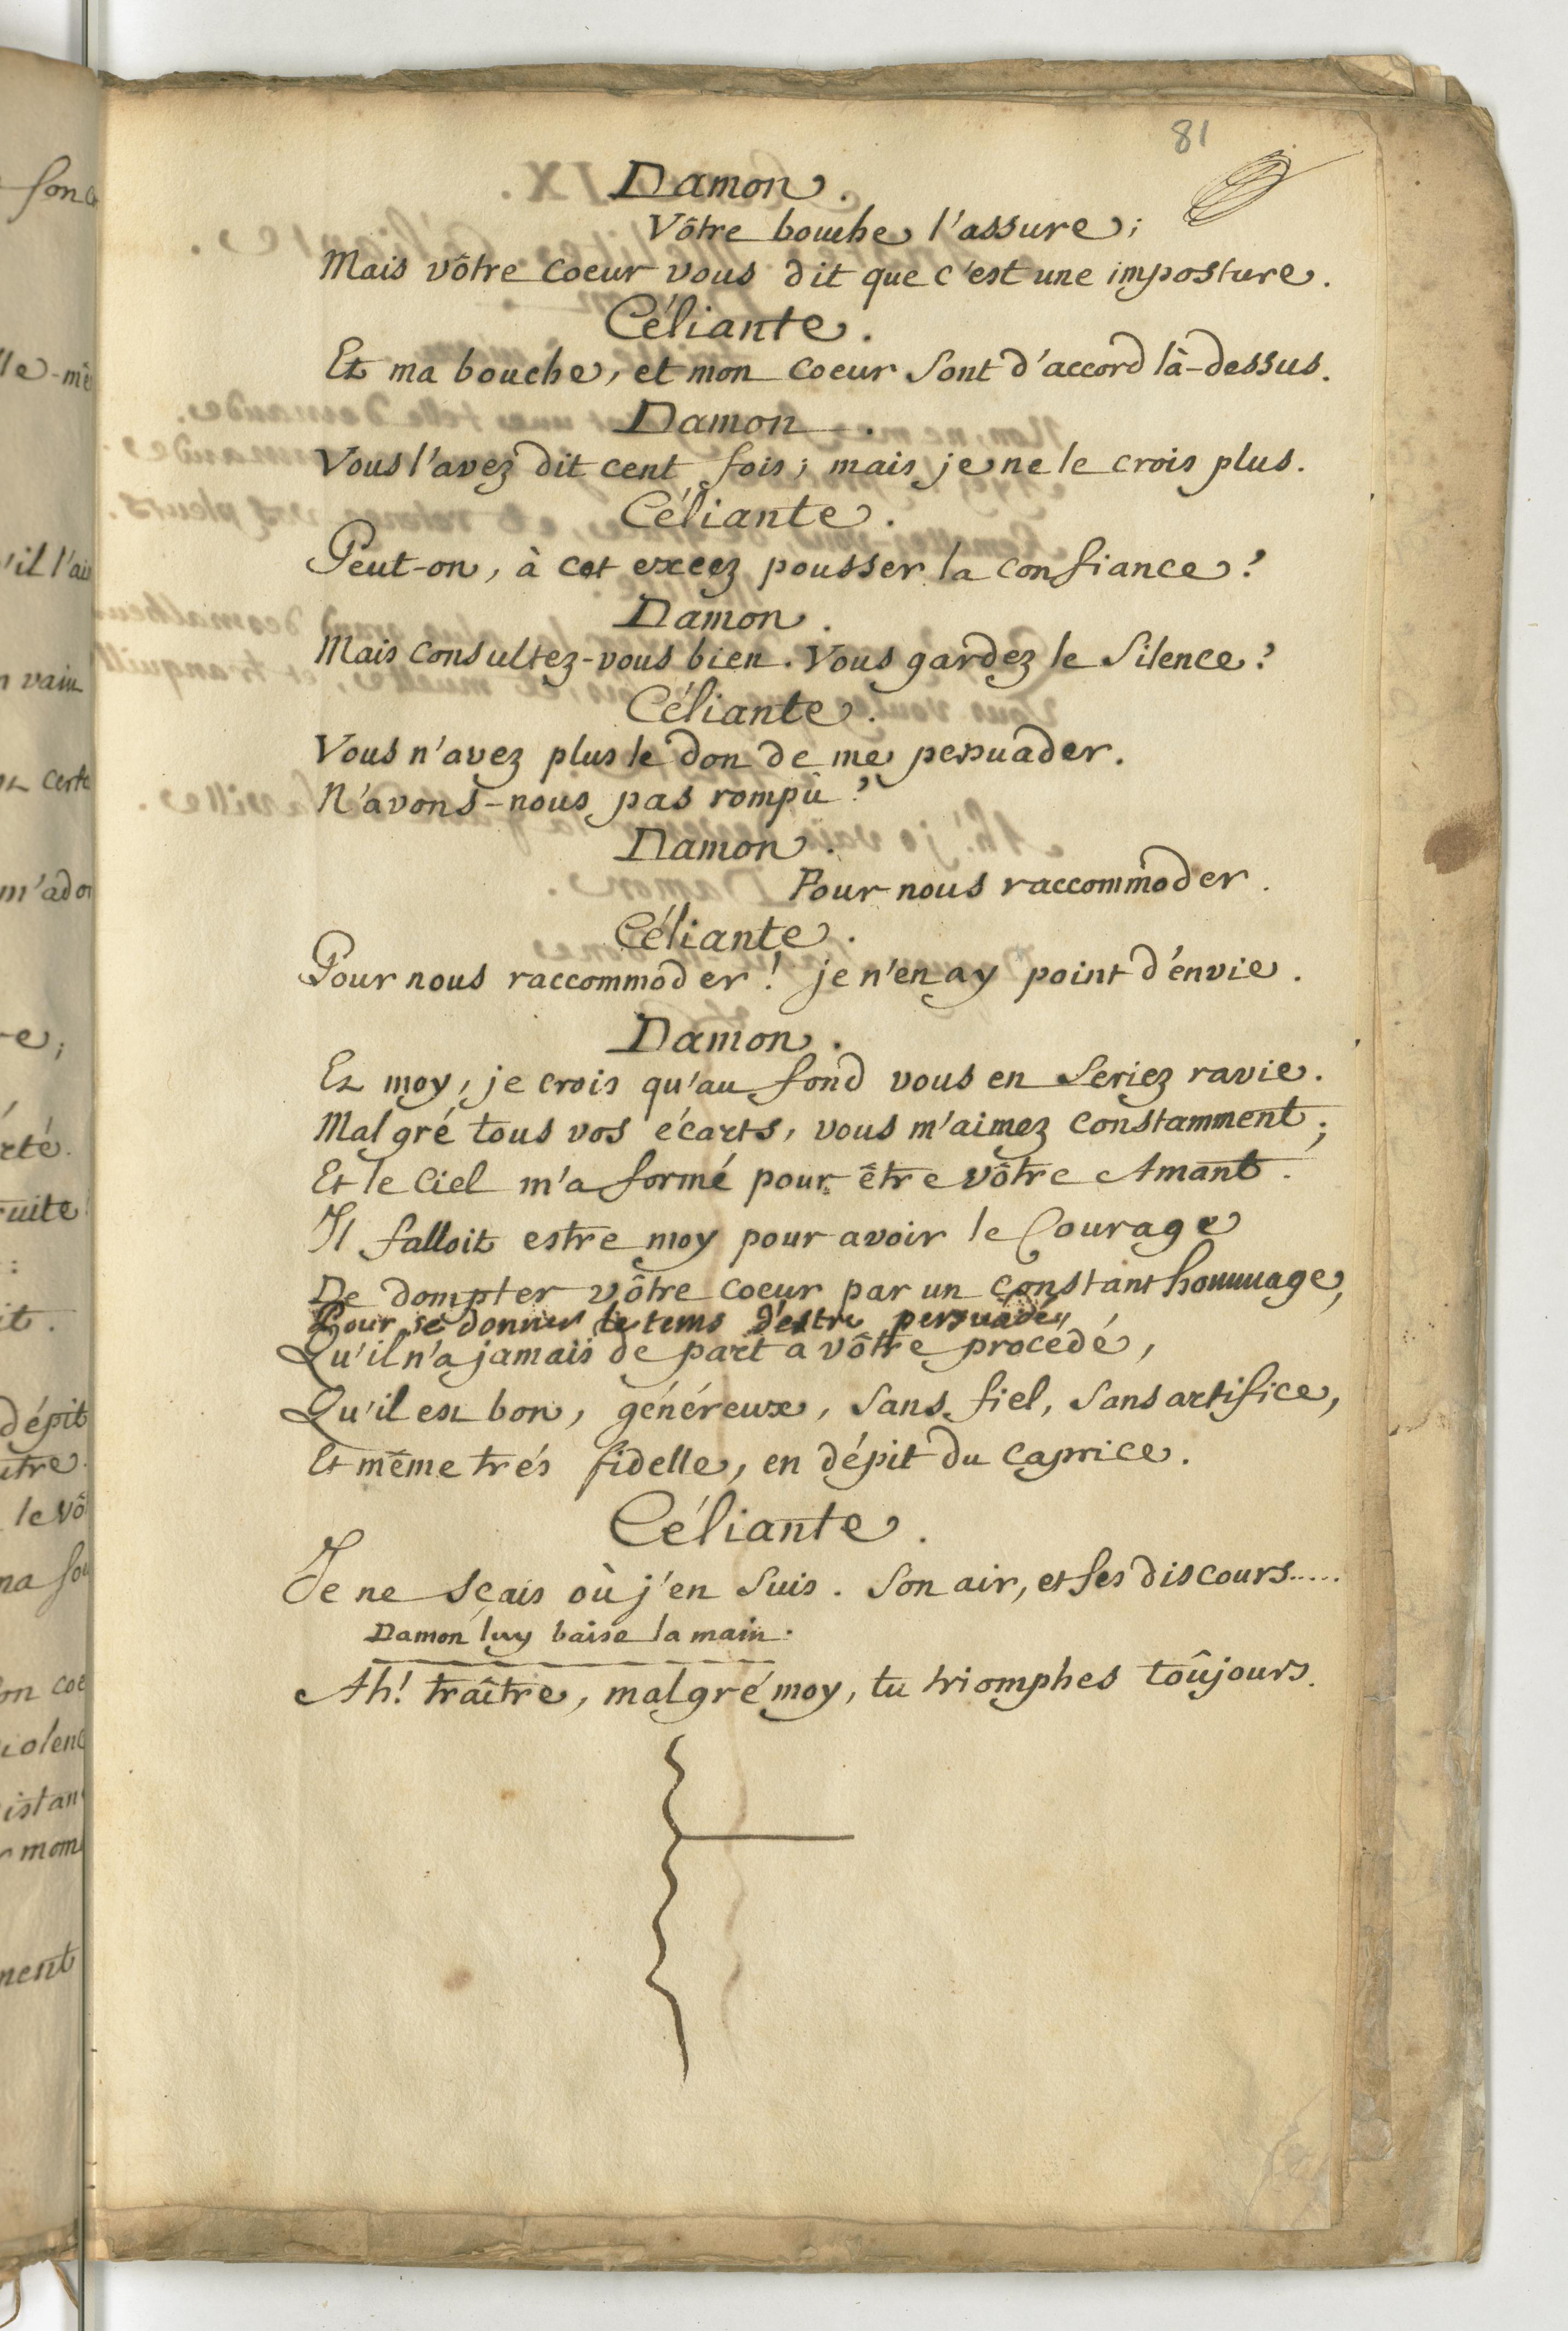 81
Damon.
Vôtre bouche l'assure;
Mais vôtre coeur vous dit que c'est une imposture.
Céliante.
Et ma bouche, et mon coeur sont d'accord là-dessus.
Damon.
Vous l'avez dit cent fois; mais je ne le crois plus.
Céliante.
Peut-on, à cet excez pousser la confiance?
Damon.
Mais consultez-vous bien. Vous gardez le silence?
Céliante.
Vous n'avez plus le don de me persuader.
N'avons-nous pas rompû?
Damon.
Pour nous raccommoder.
Céliante.
Pour nous raccommoder! je n'en ay point d'envie.
Damon.
Et moy, je crois qu'au fond vous en seriez ravie.
Malgré tous vos écarts, vous m'aimez constamment;
Et le Ciel m'a formé pour être vôtre Amant.
Il falloit estre moy pour avoir le Courage
De dompter vôtre coeur par un constant hommage,
Pour se donner le tems d'estre persuadé,
Qu'il n'a jamais de part a vôtre procédé,
Qu'il est bon, généreux, sans fiel, sans artifice,
Et même trés fidelle, en dépit du caprice.
Céliante.
Je ne sçais où j'en suis. Son air, et ses discours.....
Damon luy baise la main.
Ah! traître, malgré moy, tu triomphes toûjours.